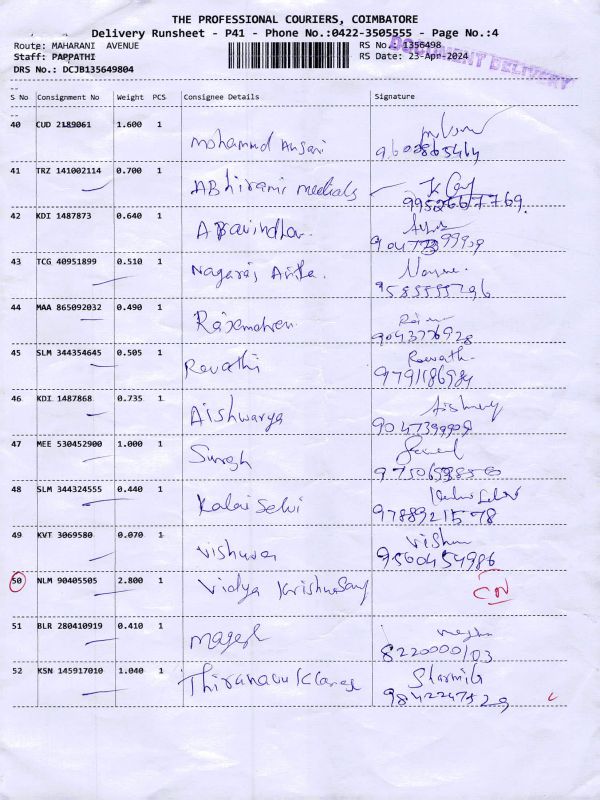 THE PROFESSIONAL COURIERS, COIMBATORE
Delivery Runsheet - P41 - Phone No.:0422-3505555 - Page No.:4
Route: MAHARANI AVENUE RS No.: 1356498
Staff: PAPPATHI RS Date: 23-Apr-2024
DRS No.: DCJB135649804 DOCUMENT DELIVERY
S No Consignment No Weight PCS Consignee Details Signature
40 CUD 2189061 1.600 1
Mohammd Ansari
41 TRZ 141002114 0.700 1
ABhirami medicals
9952667769.
42 KDI 1487873 0.640 1
43 TCG 40951899 0.510 1
Nagaraj
9585555296
44 MAA 865092032 0.490 1
9043776928
45 SLM 344354645 0.505 1 Revath
Revathi 9791186984
46 KDI 1487868 0.735 1
Aishwarya 9047399909
47 MEE 530452900 1.000 1
Suresh
48 SLM 344324555 0.440 1
Kalai Selvi 9788921578
49 KVT 3069580 0.070 1 Vishnu
9560454986
50 NLM 90405505 2.800 1 Vidya CN
51 BLR 280410919 0.410 1
Magesh 8220000103
52 KSN 145917010 1.040 1 Sharmila
9842247529